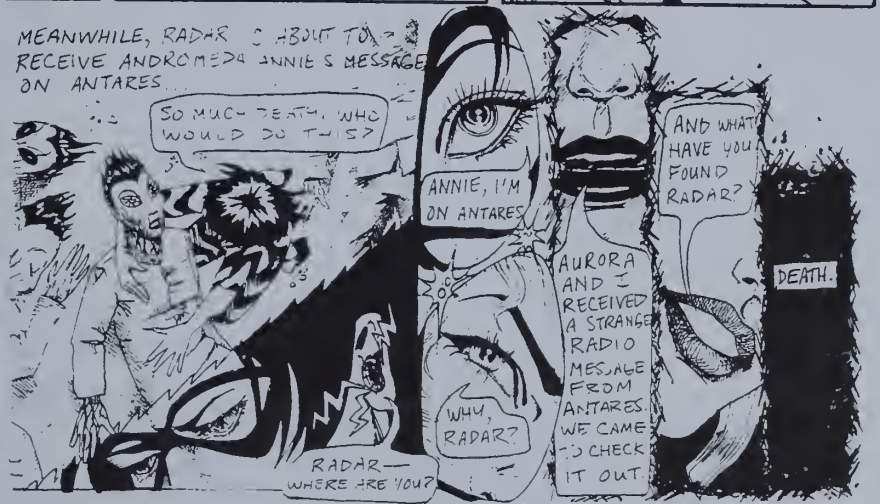 MEANWHILE, RADAR IS ABOUT TO
RECEIVE ANDROMEDA ANNIE'S MESSAGE
ON ANTARES
SO MUCH DEATH. WHO
WOULD DO THIS?
RADAR—
WHERE ARE YOU?
ANNIE, I'M
ON ANTARES
WHY,
RADAR?
AURORA
AND I
RECEIVED
A STRANGE
RADIO
MESSAGE
FROM
ANTARES.
WE CAME
TO CHECK
IT OUT.
AND WHAT
HAVE YOU
FOUND
RADAR?
DEATH.